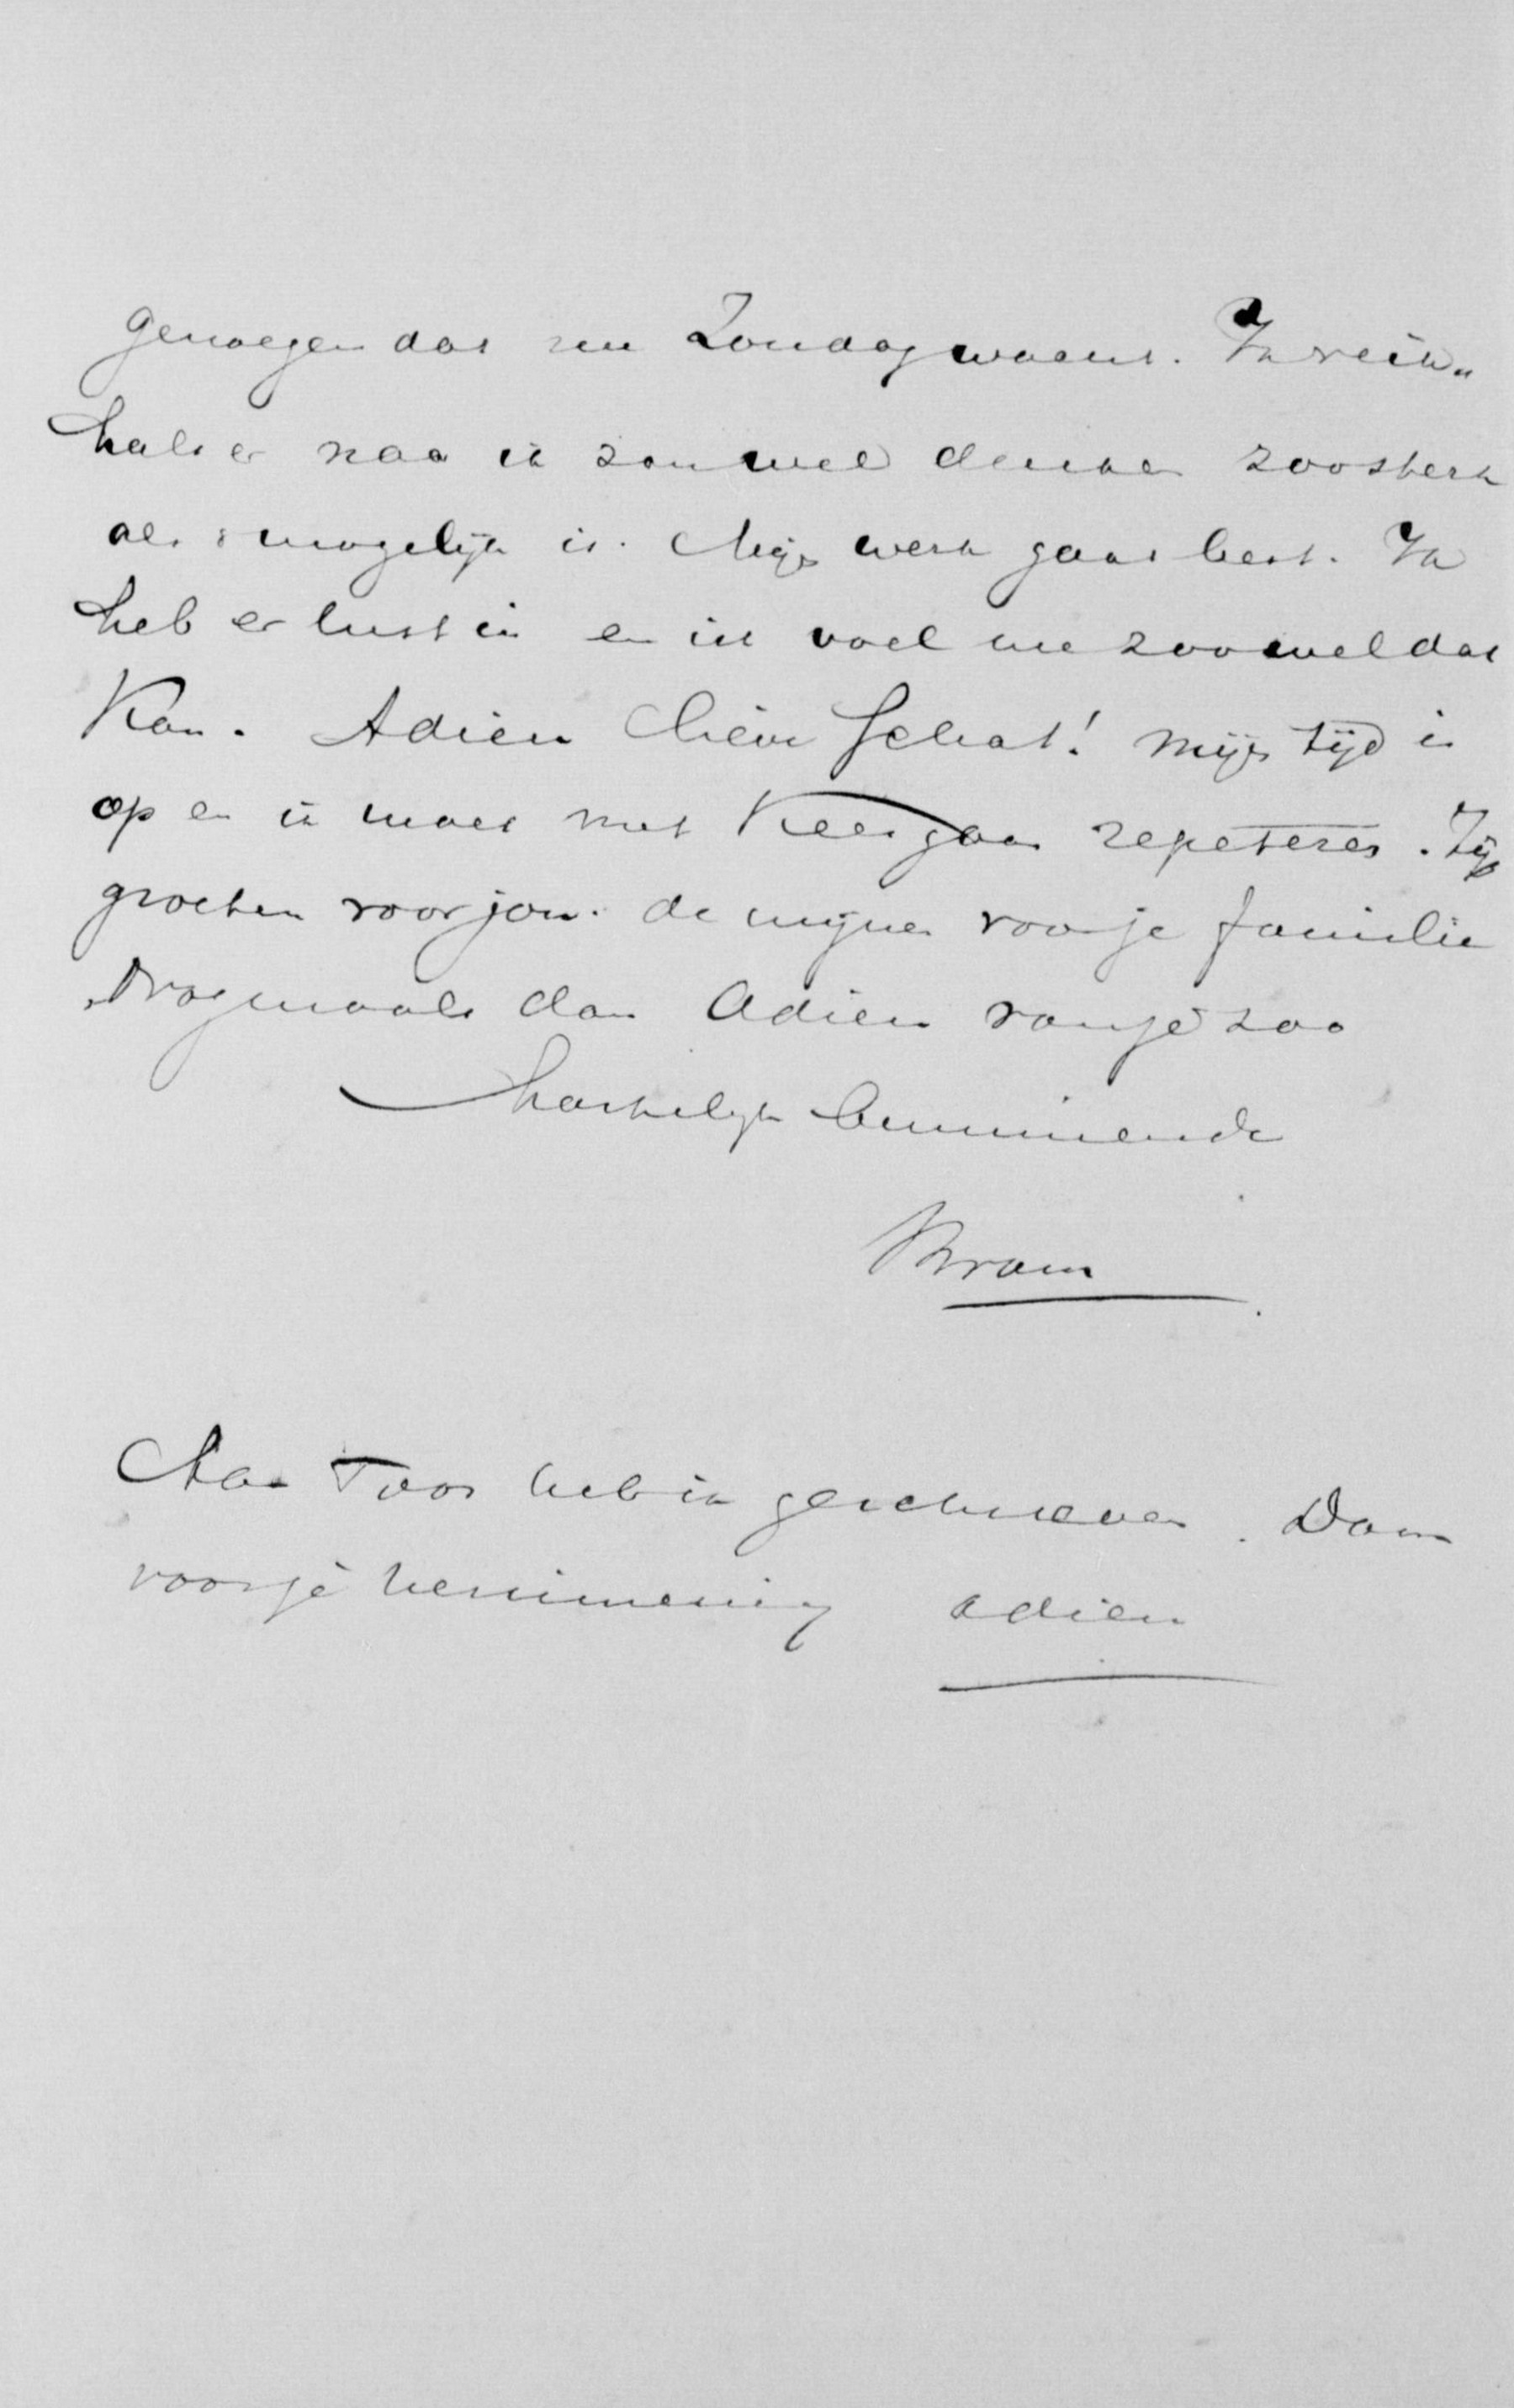 genoegen dat nu Zondag waant. Ik reik„
hals er naa ik zou wel denken zoo sterk
als 't mogelijk is. Mijn werk gaat best. Ik
heb er lust in en ik voel me zoo wel dat
kan. Adieu lieve Schat! Mijn tijd is
op en ik moet met Kees gaan repeteren. Zijn
groeten voor jou. de mijnen voor je familie
Nogmaals dan Adieu van je zoo
hartelijk beminnende
Bram
Aan Toos heb ik geschreven. Dank
voor je herinnering adieu